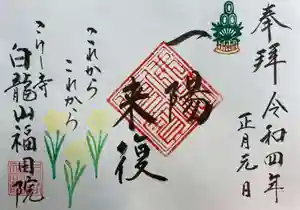 奉拝
令和四年
正月元日
陽
来
復
これから
これから
こけし寺
白龍山福田院